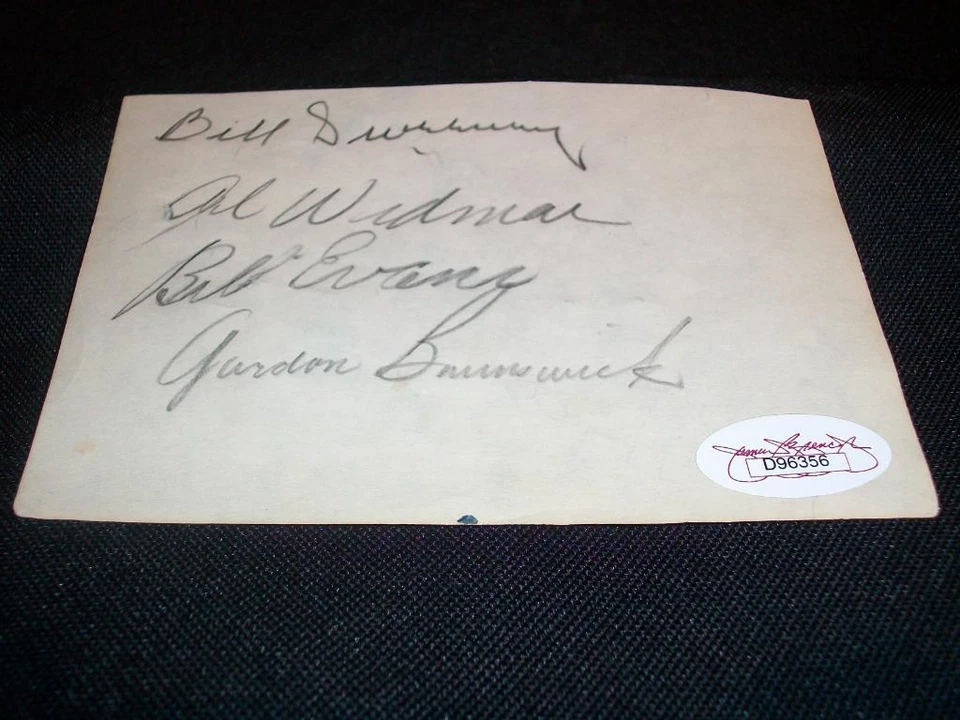 Bill Sweeney
Al Widmar
Bill Evans
Gordon Brunswick
James Spence
D96356